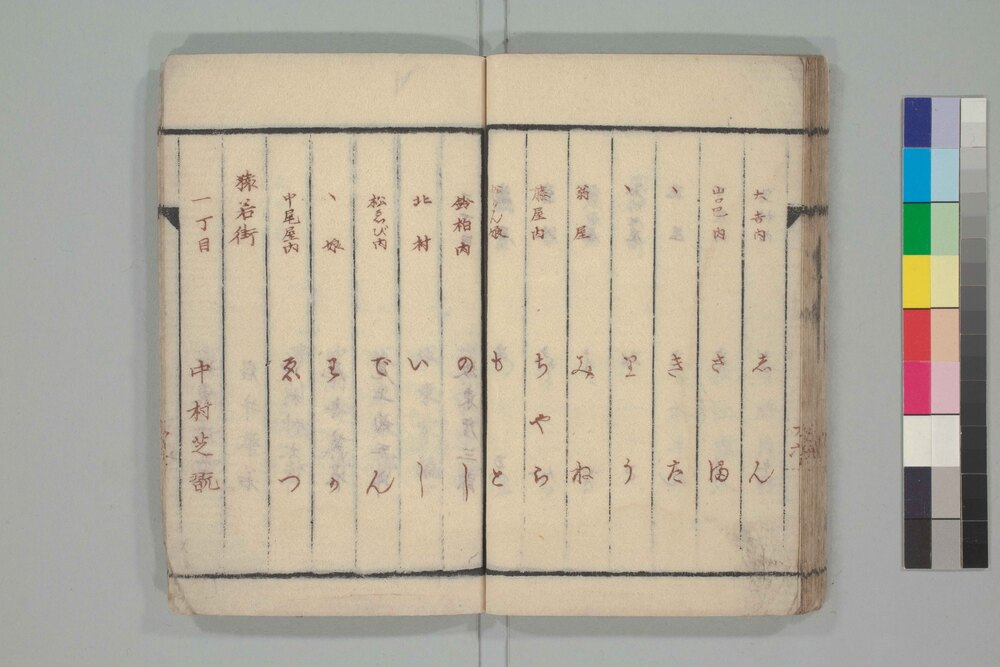 大吉内 志ん
山口巴内 さ満
〃 きた
〃 里う
翁屋 みね
藤屋内 ちやら
ん娘 もと
鈴柏内 のし
北村 いし
松ゑび内 でん
〃娘 王か
中尾屋内 ゑつ
猿若街
一丁目 中村芝翫